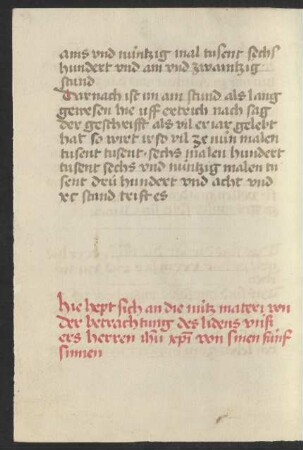 ains vnd nüntzig mal tusent sechs
hundert vnd ain vnd zwaintzig
stund
Darnach ist im ain stund als lang
gewesen hie uff ertrich nach sag
der geschrifft als vil er iar gelebt
hat so wirt ir so vil ze nün malen
tusent tusent · sechs malen hundert
tusent sechs vnd nüntzig malen tu
sent drü hundert vnd acht vnd
stund
hie hept sich an die nütz materi von
der betrachtung des lidens vnß
ers herren ihū xp̄i von sinen fünf
sinnen